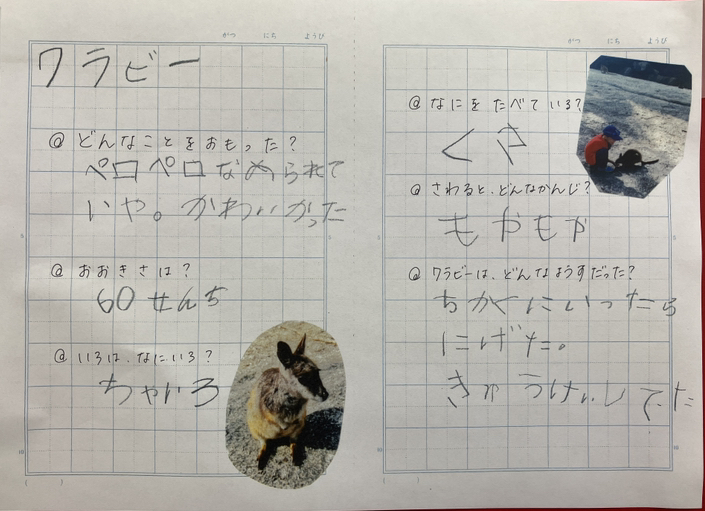 がつ にち ようび
ワラビー
@ どんなことをおもった?
ペロペロなめられて
いや。かわいかった
@ おおきさは?
60せんち
@ いろは、なにいろ?
ちゃいろ
がつ にち ようび
@ なにをたべている?
くや
@ さわると、どんなかんじ?
もやもや
@ ワラビーは、どんなようすだった?
ちかくにいったら
にげた。
きゅうけいしてた